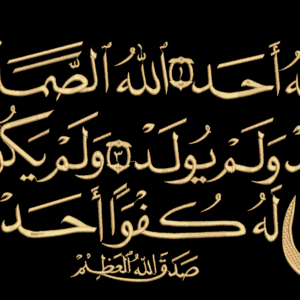 ـهُ أَحَد ١ ٱللَّهُ ٱلصَّمَـ
ـدْ وَلَمْ يُولَدْ ٣ وَلَمْ يَكُـ
لَهُ كُفُوًا أَحَدْ
صَدَقَ اللهُ العَظِيْم